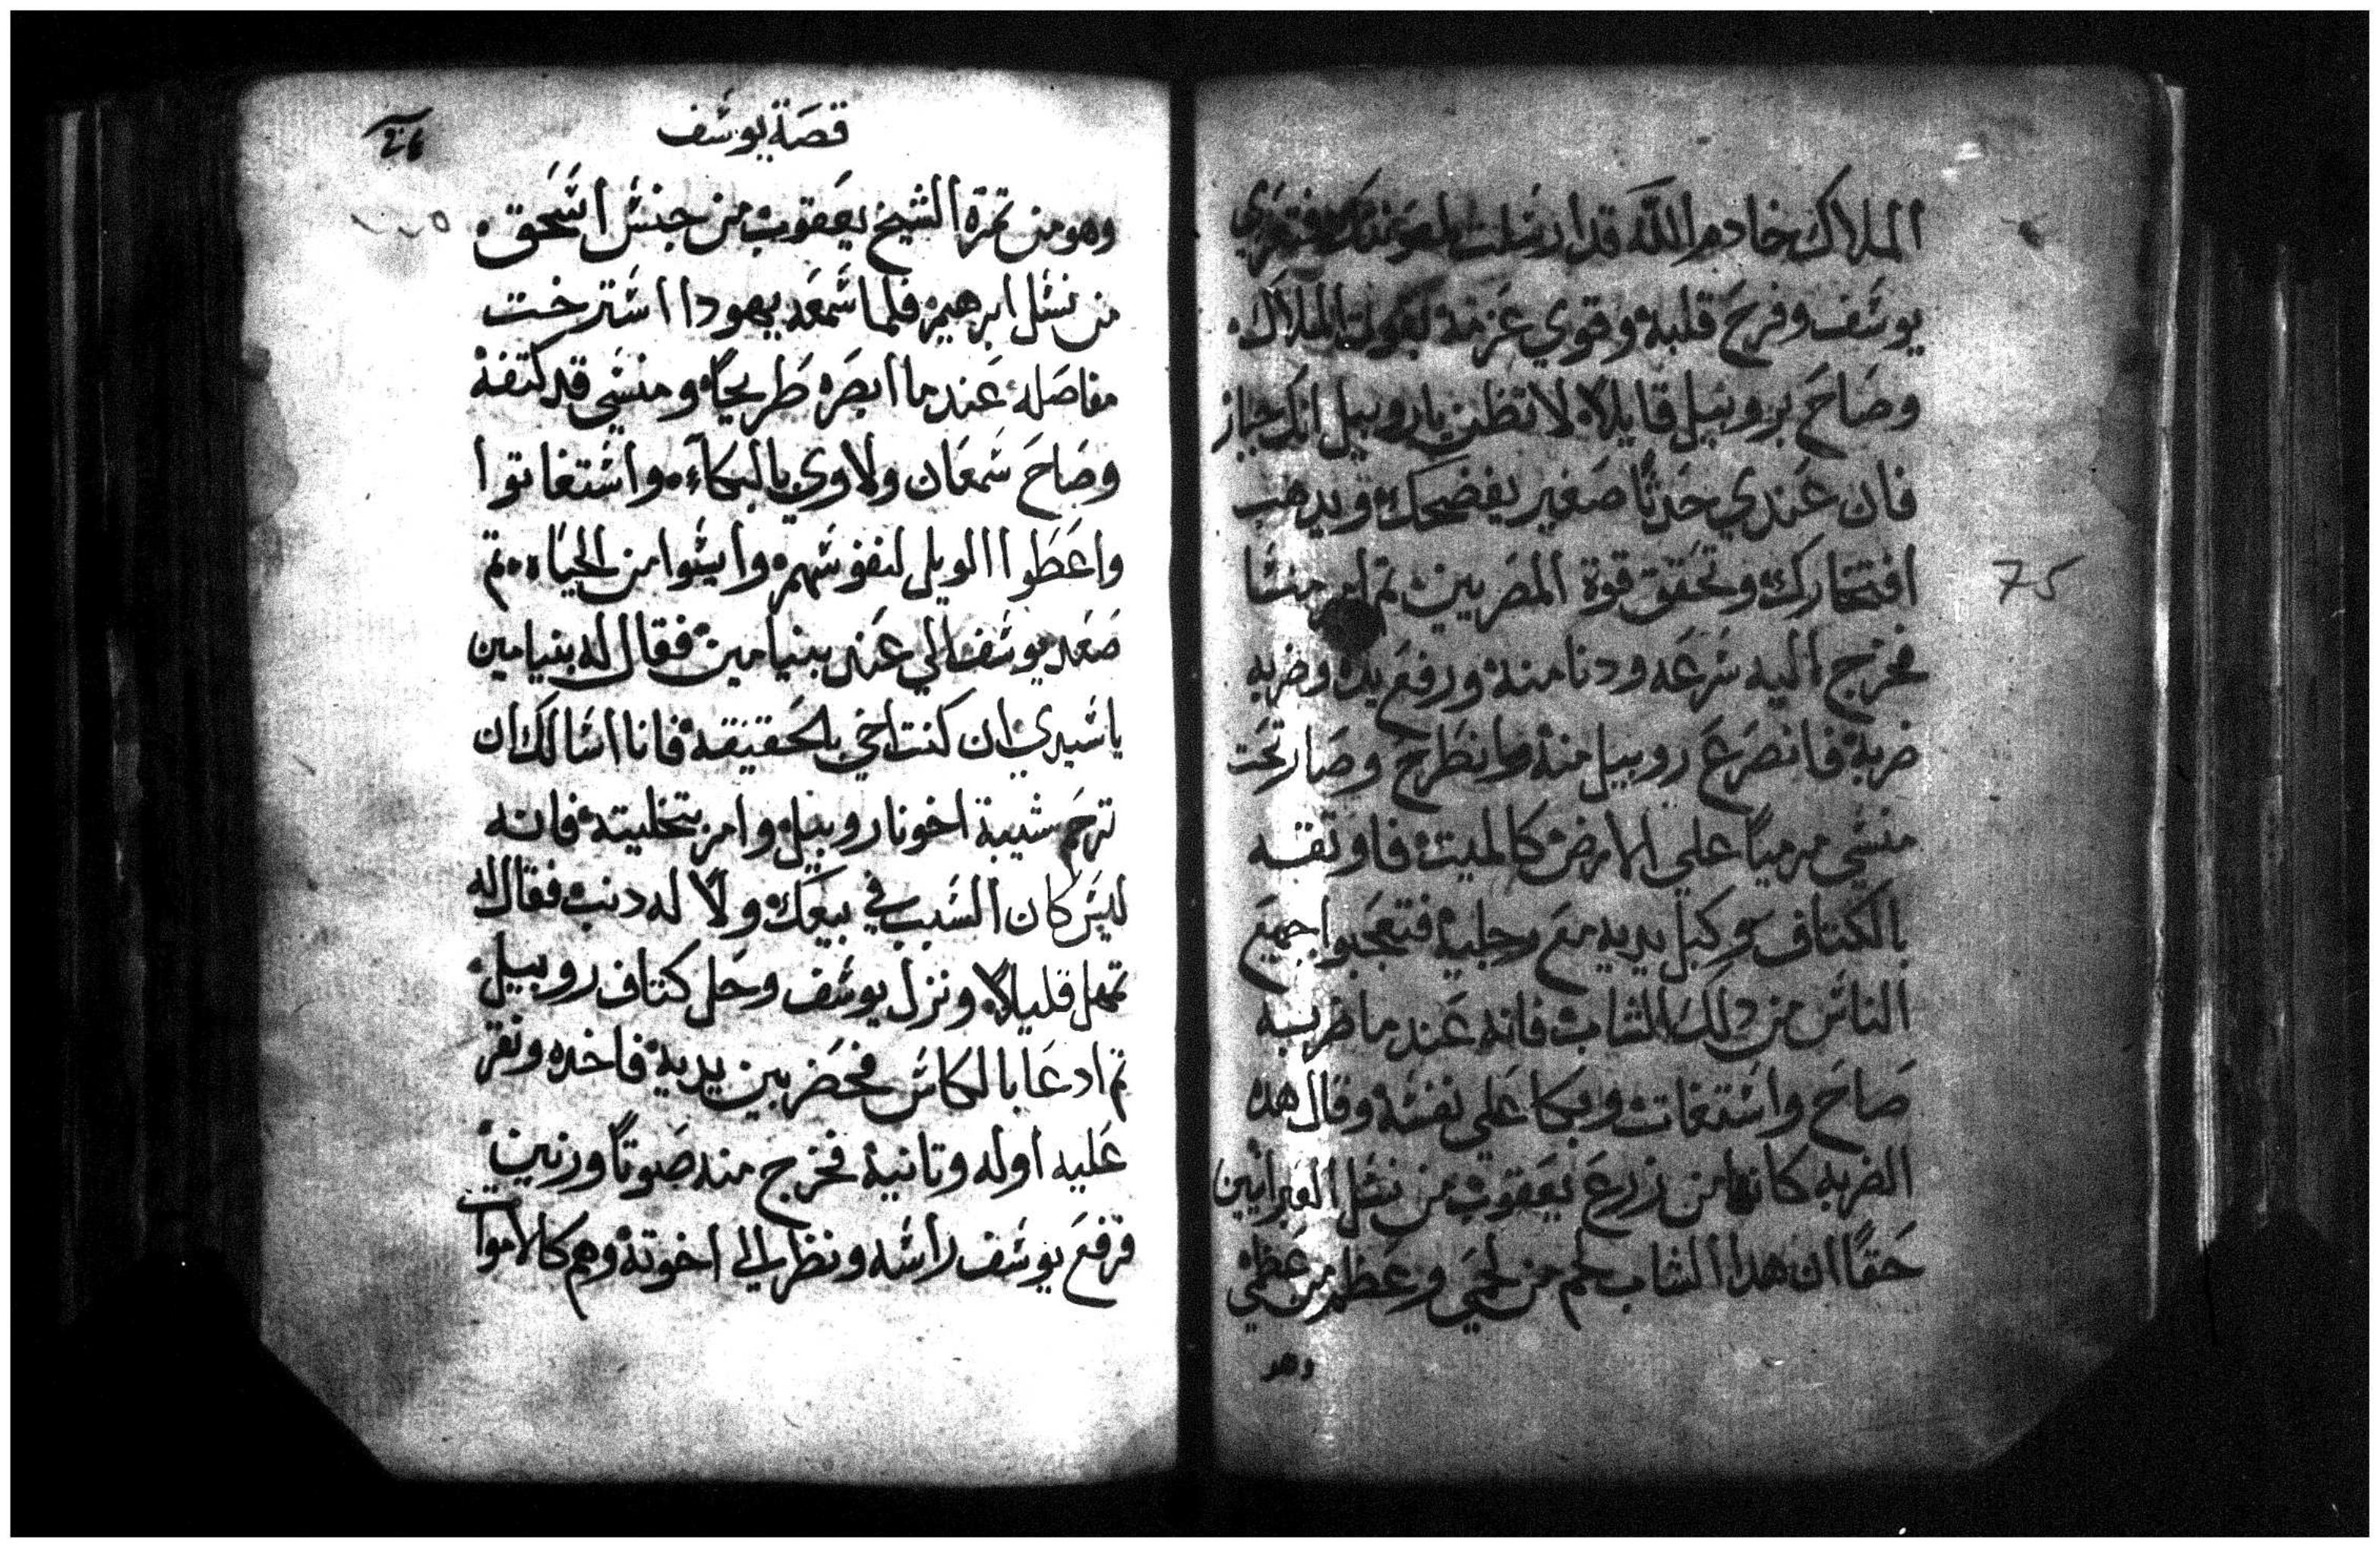 الملاك خادم الله قد ارسلت لمعونتك فتعزي
يوسف وفرح قلبه وقوي عزمه بقول الملاك
وصاح بروبيل قايلا لا تظن يا روبيل انك جبار
فان عندي حدثا صغير يفضحك ويدهب
افتخارك وتحقق قوة المصريين تم امر منسا
فخرج اليه سرعه ودنا منه ورفع يده وضربه
ضربة فانصرع روبيل منه وانطرح وصار تحت
منسي مرميا علي الارض كالميت فاوتقه
بالكتاف وكبل يديه مع رجليه فتعجبوا جميع
الناس من دلك الشاب فانه عند ما ضربه
صاح واستغات وبكا علي نفسه وقال هده
الضربه كانها من زرع يعقوب من نسل العبرانيين
حقا ان هدا الشاب لحم من لحمي وعظم من عظمي
وهو
75
قصة يوسف
وهو من تمرة الشيخ يعقوب من جنس اسحق
من نسل ابرهيم فلما سمعه يهودا استرخت
مفاصله عند ما ابصره طريحا ومنسي قد كتفه
وصاح شمعان ولاوي بالبكاء واستغاتوا
واعطوا الويل لنفوسهم وايسوا من الحياه تم
صعد يوسف الي عند بنيامين فقال له بنيامين
يا سيدي ان كنت اخي بالحقيقه فانا اسالك ان
ترحم شيبة اخونا روبيل وامر بتخليته فانه
ليس كان السبب في بيعك ولا له دنب فقال له
تمهل قليلا ونزل يوسف وحل كتاف روبيل
تم ادعا بالكاس فحضر بين يديه فاخده ونقر
عليه اوله وتانية فخرج منه صوتا ورنين
فرفع يوسف راسه ونظر الي اخوته وهم كالاموات